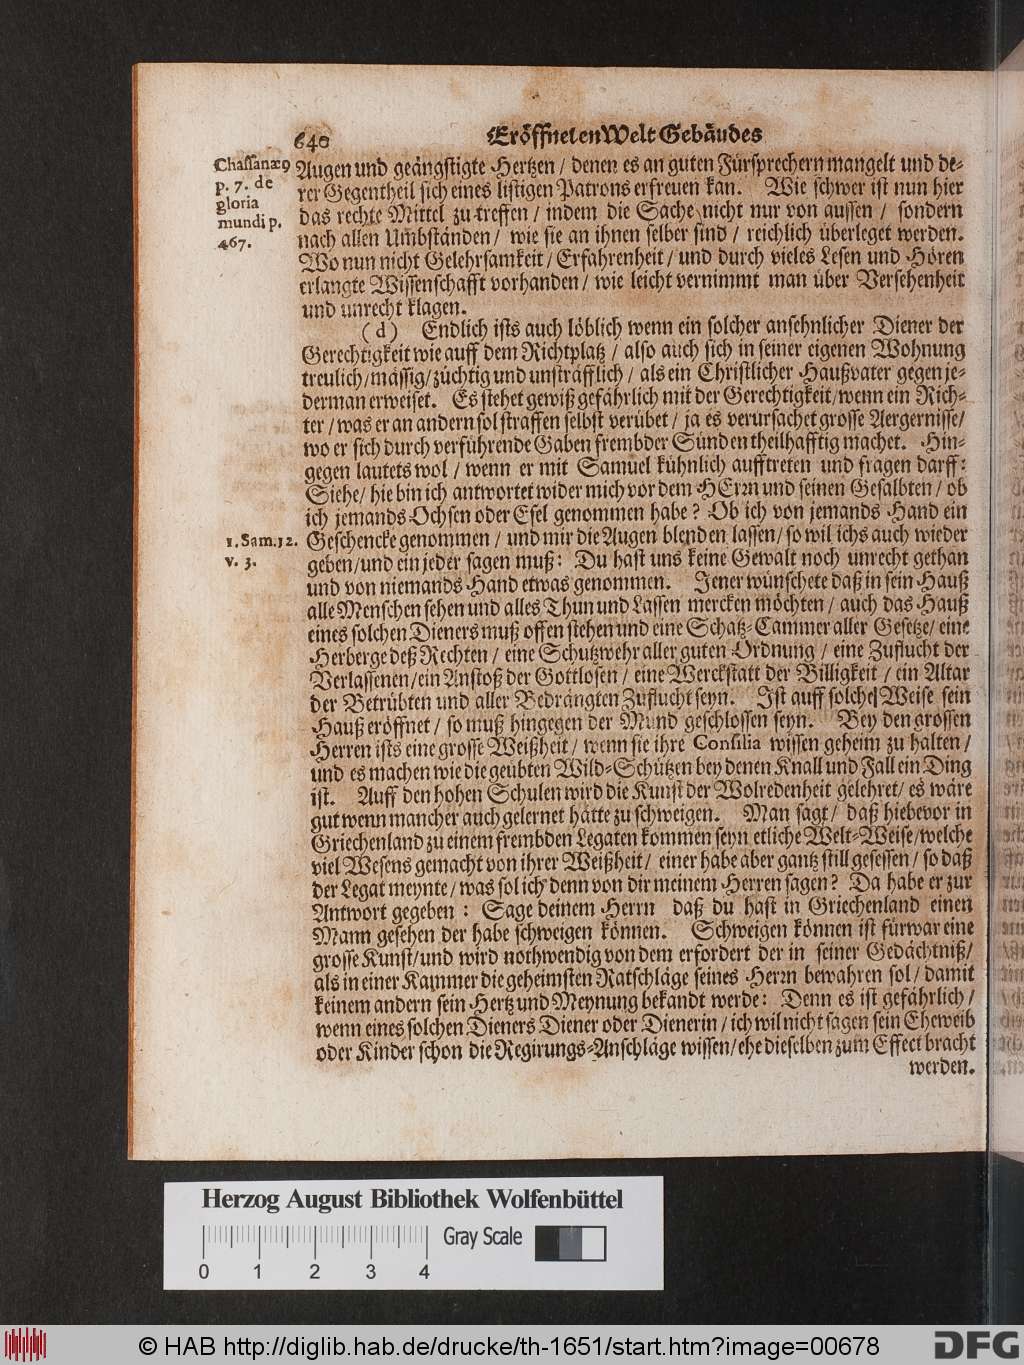 640
Eröffneten Welt Gebäudes
Chassanæ9
p. 7. de
gloria
mundi p.
467.
Augen und geängstigte Hertzen / denen es an guten Fürsprechern mangelt und de-
rer Gegentheil sich eines listigen Patrons erfreuen kan. Wie schwer ist nun hier
das rechte Mittel zu treffen / indem die Sache nicht nur von aussen / sondern
nach allen Um̃bständen / wie sie an ihnen selber sind / reichlich überleget werden.
Wo nun nicht Gelehrsamkeit / Erfahrenheit / und durch vieles Lesen und Hören
erlangte Wissenschafft vorhanden / wie leicht vernimmt man über Versehenheit
und unrecht klagen.
(d) Endlich ists auch löblich wenn ein solcher ansehnlicher Diener der
Gerechtigkeit wie auff dem Richtplatz / also auch sich in seiner eigenen Wohnung
treulich / mässig / züchtig und unsträfflich / als ein Christlicher Haußvater gegen je-
derman erweiset. Es stehet gewiß gefährlich mit der Gerechtigkeit / wenn ein Rich-
ter / was er an andern sol straffen selbst verübet / ja es verursachet grosse Aergernisse /
wo er sich durch verführende Gaben frembder Sünden theilhafftig machet. Hin-
gegen lautets wol / wenn er mit Samuel kühnlich aufftreten und fragen darff:
Siehe / hie bin ich antwortet wider mich vor dem HErrn und seinen Gesalbten / ob
ich jemands Ochsen oder Esel genommen habe? Ob ich von jemands Hand ein
1. Sam. 12.
v. 3.
Geschencke genommen / und mir die Augen blenden lassen / so wil ichs auch wieder
geben / und ein jeder sagen muß: Du hast uns keine Gewalt noch unrecht gethan
und von niemands Hand etwas genommen. Jener wünschete daß in sein Hauß
alle Menschen sehen und alles Thun und Lassen mercken möchten / auch das Hauß
eines solchen Dieners muß offen stehen und eine Schatz-Cammer aller Gesetze / eine
Herberge deß Rechten / eine Schutzwehr aller guten Ordnung / eine Zuflucht der
Verlassenen / ein Anstoß der Gottlosen / eine Werckstatt der Billigkeit / ein Altar
der Betrübten und aller Bedrängten Zuflucht seyn. Ist auff solche Weise sein
Hauß eröffnet / so muß hingegen der Mund geschlossen seyn. Bey den grossen
Herren ists eine grosse Weißheit / wenn sie ihre Consilia wissen geheim zu halten /
und es machen wie die geübten Wild-Schützen bey denen Knall und Fall ein Ding
ist. Auff den hohen Schulen wird die Kunst der Wolredenheit gelehret / es wäre
gut wenn mancher auch gelernet hätte zu schweigen. Man sagt / daß hiebevor in
Griechenland zu einem frembden Legaten kommen seyn etliche Welt-Weise / welche
viel Wesens gemacht von ihrer Weißheit / einer habe aber gantz still gesessen / so daß
der Legat meynte / was sol ich denn von dir meinem Herren sagen? Da habe er zur
Antwort gegeben: Sage deinem Herrn daß du hast in Griechenland einen
Mann gesehen der habe schweigen können. Schweigen können ist fürwar eine
grosse Kunst / und wird nothwendig von dem erfordert der in seiner Gedächtniß /
als in einer Kammer die geheimsten Ratschläge seines Herrn bewahren sol / damit
keinem andern sein Hertz und Meynung bekandt werde: Denn es ist gefährlich /
wenn eines solchen Dieners Diener oder Dienerin / ich wil nicht sagen sein Eheweib
oder Kinder schon die Regirungs-Anschläge wissen / ehe dieselben zum Effect bracht
werden.
Herzog August Bibliothek Wolfenbüttel
Gray Scale
0 1 2 3 4
© HAB http://diglib.hab.de/drucke/th-1651/start.htm?image=00678
DFG